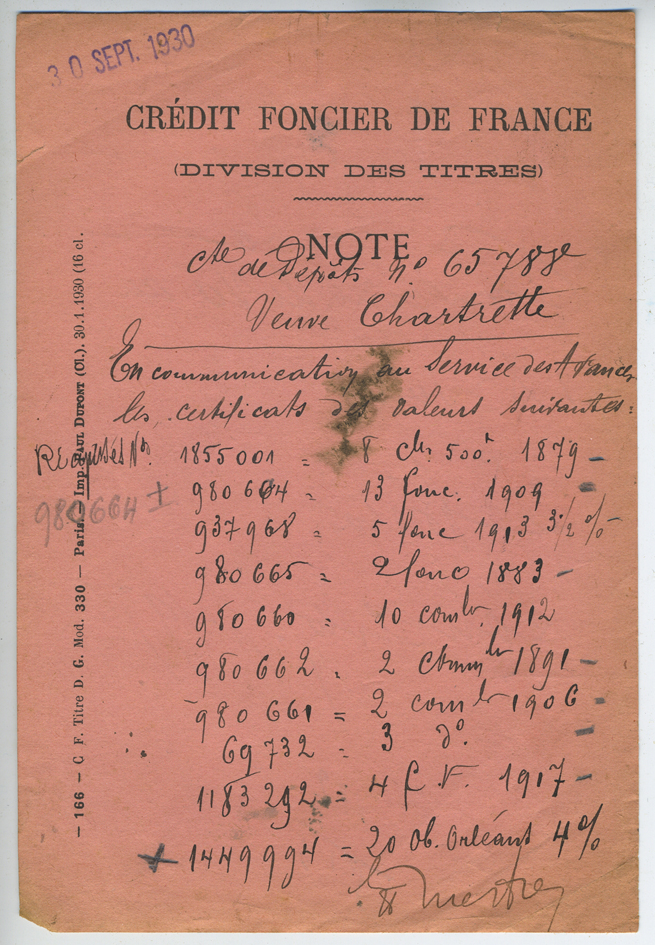 30 SEPT. 1930
CRÉDIT FONCIER DE FRANCE
(DIVISION DES TITRES)
NOTE
Cte de Dépôts No 65788
Veuve Chartrette
En communication au Service des Avances
les certificats des valeurs suivantes:
Nos. 1855001 = 8 500 1879 -
980664 = 13 fonc. 1909 -
980664 +
937968 = 5 fonc 1913 3 1/2 % -
980665 = 2 fonc 1883 -
980660 = 10 1912
980662 = 2 1891 -
980661 = 2 1906 -
69732 = 3 do. -
1183292 = 4 1917 -
+ 1449994 = 20 Ob. Orléans 4%
- 166 - C F. Titre D. G. Mod. 330 - Paris. - Imp. PAUL DUPONT (Cl.). 30.1.1930 (16 cl.